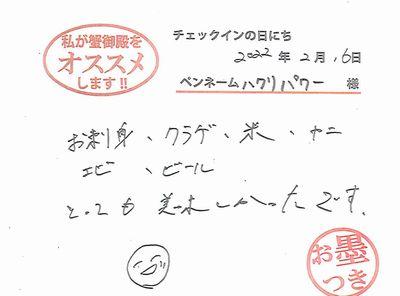 私が蟹御殿を
オススメ
します!!
チェックインの日にち
2022年 2月 16日
ペンネーム ハクリパワー 様
お刺身、クラゲ、米、カニ
エビ、ビール
とっても美味しかったです。
お墨
つき